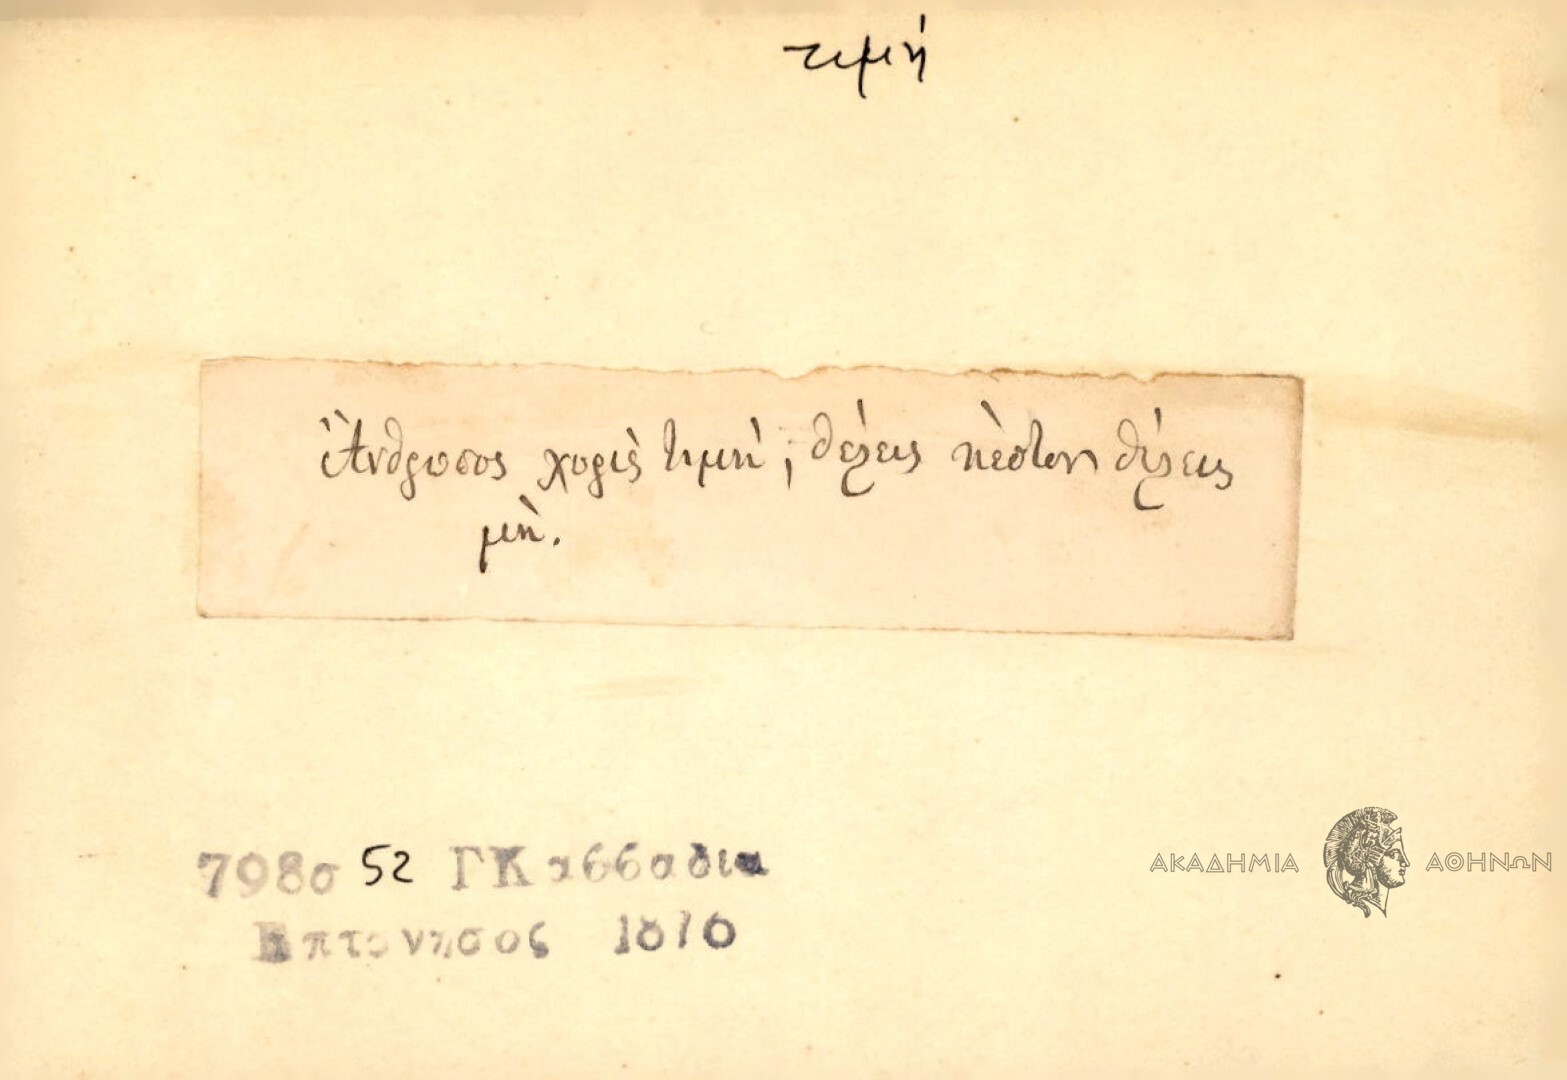 τιμή
Ἄνθρωπος χωρὶς τιμὴ, θέλεις πὲστον θέλεις
μὴ.
798σ 52 ΓΚαββαδια
Επτονησος 1876
ΑΚΑΔΗΜΙΑ ΑΘΗΝΩΝ